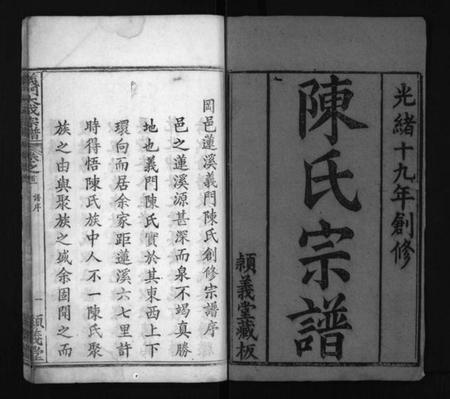 光緒十九年創修
陳氏宗譜
頴義堂藏板
岡邑蓮溪義門陳氏創修宗譜序
邑之蓮溪源甚深而泉不竭真勝
地也義門陳氏實於其東西上下
環向而居余家距蓮溪六七里許
時得悟陳氏族中人不一陳氏聚
族之由與聚族之誠余固聞之而
義門大成宗譜
卷之三
譜序
一
頴義堂